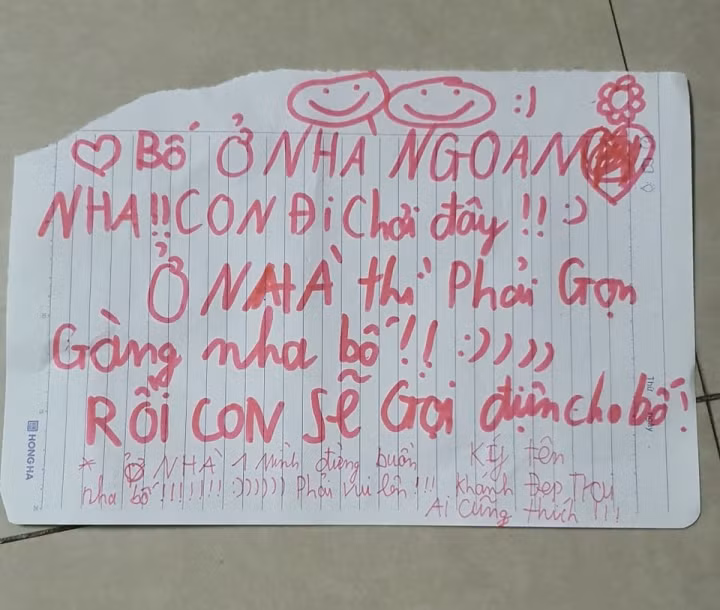 :)
Bố Ở NHA NGOAN
NHA!! CON Đi Chơi đây !! :)
Ở NHÀ thì Phải Gọn
Gàng nha bố!! :))))
RỒi CON Sẽ Gọi điện cho bố!
* Ở NHÀ 1 Mình đừng buồn
nha bố !!!!!!! :)))))) Phải vui lên !!!
Ký tên
Khánh Đẹp Trai
Ai Cũng thích !!!
HONGHA